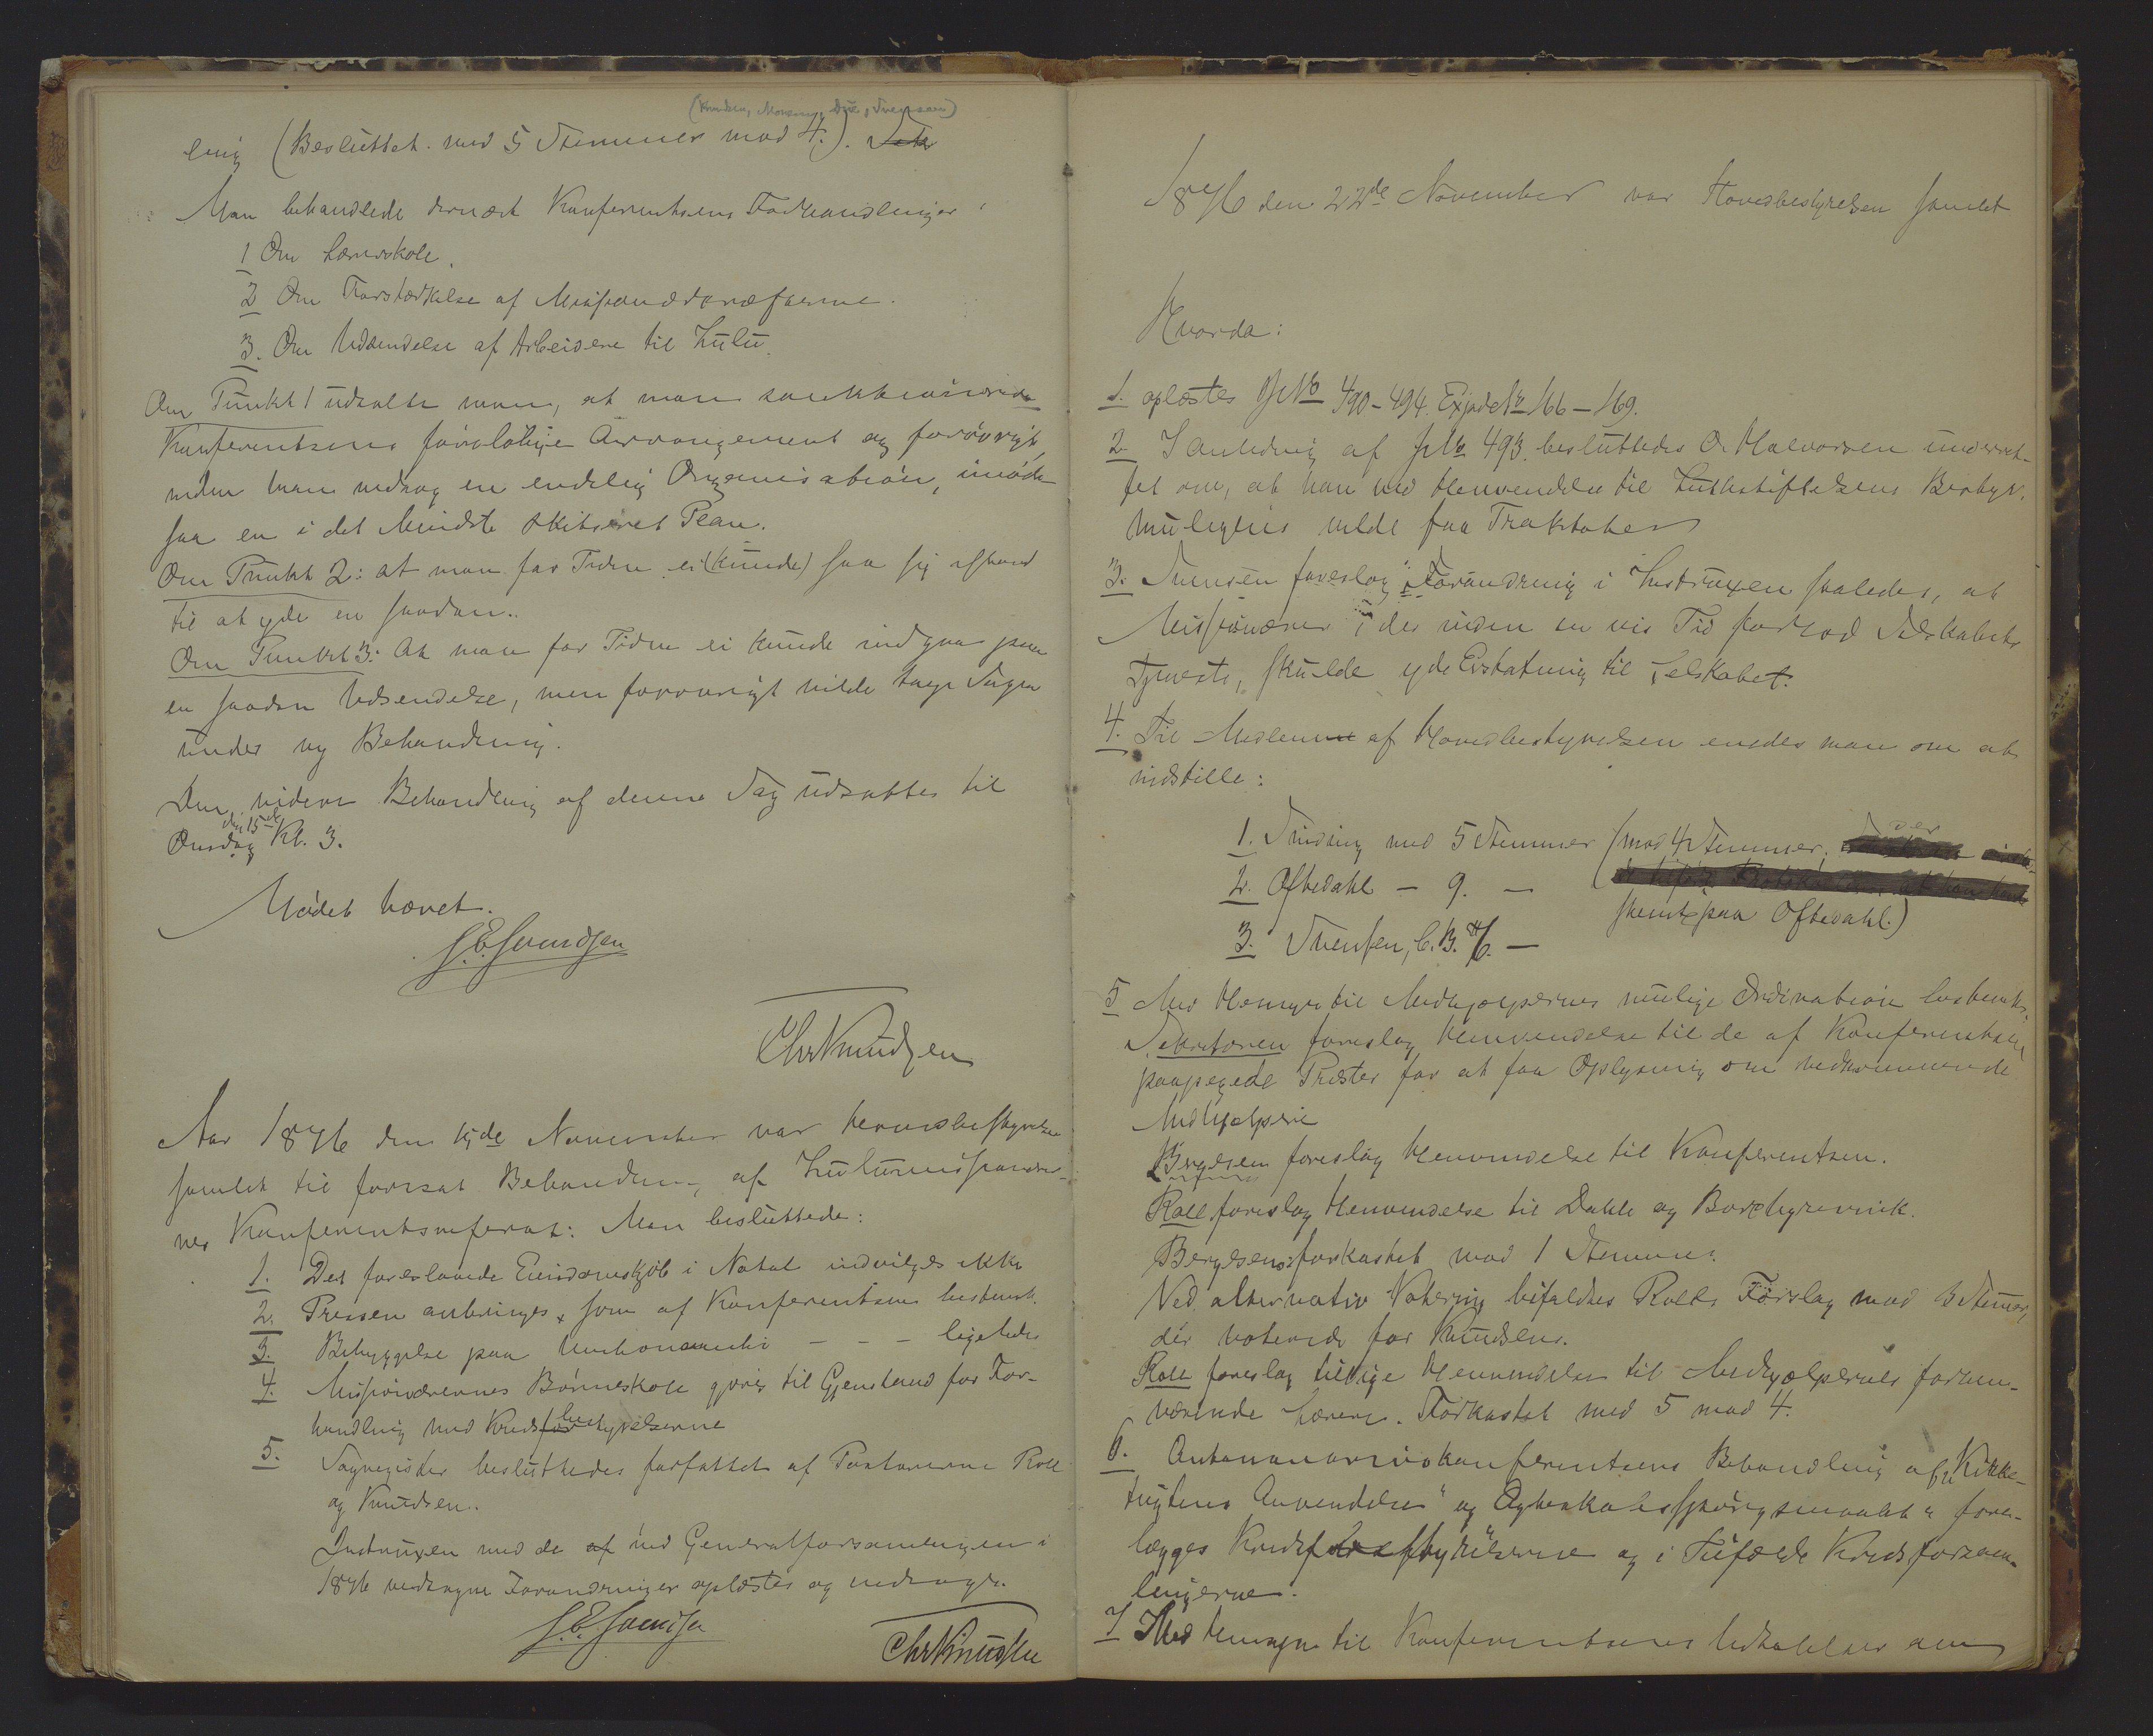 (Knudsen, Monsen, Dye, Svensen)
ling (Besluttet med 5 Stemmer mod 4.).
Man behandlede dernæst Konferentsens Forhandlinger:
1 Om Lærerskole.
2 Om Forstærkelse af Missionskræfterne.
3. Om Udsendelse af Arbeidere til Zulu.
Om Punkt 1 udtalte man, at man sanktionerede
Konferentsens foreløbige Arrangement og forøvrigt,
inden man vedtog en endelig Organisation, imøde-
saa en i det Mindste skitseret Plan.
Om Punkt 2: at man for Tiden ei (kunde) saa sig istand
til at yde en saadan.
Om Punkt 3: At man for Tiden ei kunde indgaa paa
en saadan Udsendelse, men forøvrigt vilde tage Sagen
under ny Behandling.
Den videre Behandling af denne Sag udsattes til
den 15de
Onsdag Kl. 3.
Mødet hævet.
Chr Knudsen
Aar 1876 den 15de November var Hovedbestyrelsen
samlet til fortsat Behandling af Zulumissionærer-
nes Konferentsreferat: Man besluttede:
1. Det foreslaaede Eiendomskjøb i Natal indvilges ikke
2. Pressen anbringes, som af Konferentsen bestemt.
3. Bebyggelse paa - - - ligeledes
4. Missionærernes Børneskole gjøres til Gjenstand for For-
handling med Kredsbestyrelserne
5. Sagregister besluttedes forfattet af Pastorerne Roll
og Knudsen.
Instruxen med de af ved Generalforsamlingen i
1876 vedtagne Forandringer oplæstes og vedtoges.
Chr Knudsen
1876 den 22de November var Hovedbestyrelsen samlet
Hvorda:
1. oplæstes JNo 490-494. ExpedNo 166-169.
2. I Anledning af JNo 493. besluttedes O. Halvorsen underret-
tet om, at han ved Henvendelse til Lutherstiftelsens Bestyr.
muligens vilde faa Traktater
3. Svensen foreslog "Forandring i Instruxen saaledes, at
Missionærer, der inden en vis Tid forlod Selskabets
Tjeneste, skulde yde Erstatning til Selskabet.
4. Til Medlem af Hovedbestyrelsen enedes man om at
indstille:
1. med 5 Stemmer (mod 4 Stemmer, der
2. Oftedahl - 9. -
stemte paa Oftedahl.)
3. Svensen, C. B. 6. -
5 Med Hensyn til Medhjælpernes mulige Ordination bestemtes.
Sekretæren foreslog Henvendelse til de af Konferentsen
paapegede Præster for at faa Oplysning om vedkommende
Medhjælpere
Bergesen foreslog Henvendelse til Konferentsen.
Roll foreslog Henvendelse til Dahle og Borchgrevink.
Bergesens forkastet mod 1 Stemme.
Ved alternativ Votering bifaldtes Rolls Forslag mod 3 Stemmer,
der voterede for Knudsens.
Roll foreslog tillige Henvendelse til Medhjælpernes forhen-
værende Lærere. Forkastet med 5 mod 4.
6. Antananarivokonferentsens Behandling af "Kirke-
tugtens Anvendelse" og Ægteskabsspørgsmaalet " fore-
lægges Kredsbestyrelserne og i Tilfælde Kredsforsam-
lingerne.
7 Med Hensyn til Konferentsens Udtalelser om